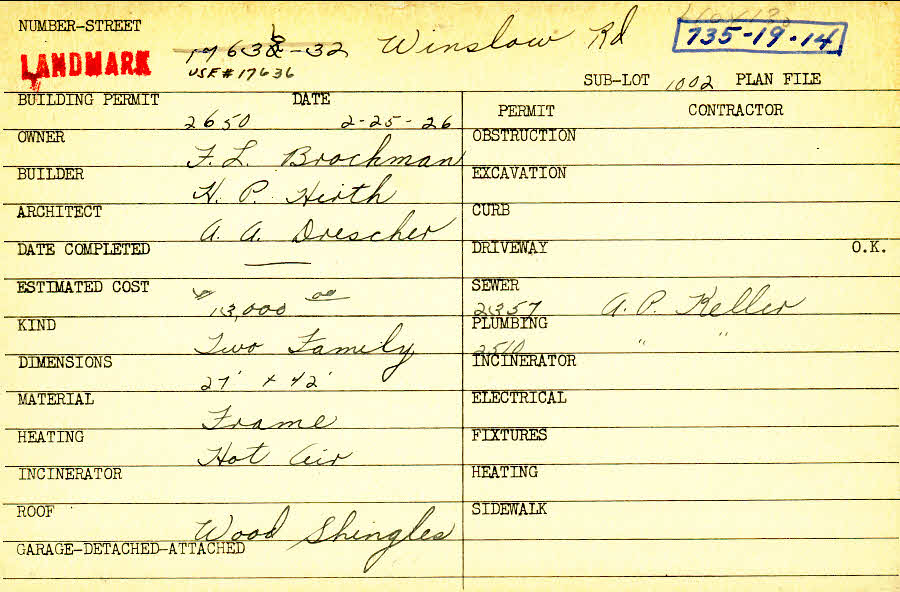 NUMBER-STREET
17636-32 Winslow Rd
735-19-14
LANDMARK
USE #17636
SUB-LOT 1002 PLAN FILE
BUILDING PERMIT DATE
2650 2-25-26
PERMIT CONTRACTOR
OWNER
F. L. Brockman
BUILDER
H. P. Hirth
ARCHITECT
A. A. Drescher
DATE COMPLETED
—
ESTIMATED COST
$ 13,000 00
KIND
Two Family
DIMENSIONS
27' x 42'
MATERIAL
Frame
HEATING
Hot Air
INCINERATOR
ROOF
Wood Shingles
GARAGE-DETACHED-ATTACHED
OBSTRUCTION
EXCAVATION
CURB
DRIVEWAY O.K.
SEWER
2357 A. P. Keller
PLUMBING
2510 " "
INCINERATOR
ELECTRICAL
FIXTURES
HEATING
SIDEWALK